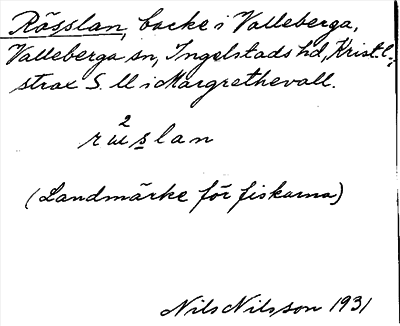 Rösslan, backe i Valleberga,
Valleberga sn, Ingelstads hd, Krist. l.,
strax S. ll i Margrethevall.
2
slan
(Landmärke för fiskarna)
Nils Nilsson 1931